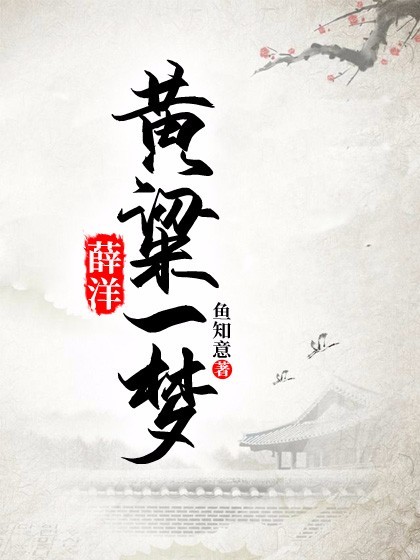 薛洋
黄粱一梦
鱼知意著